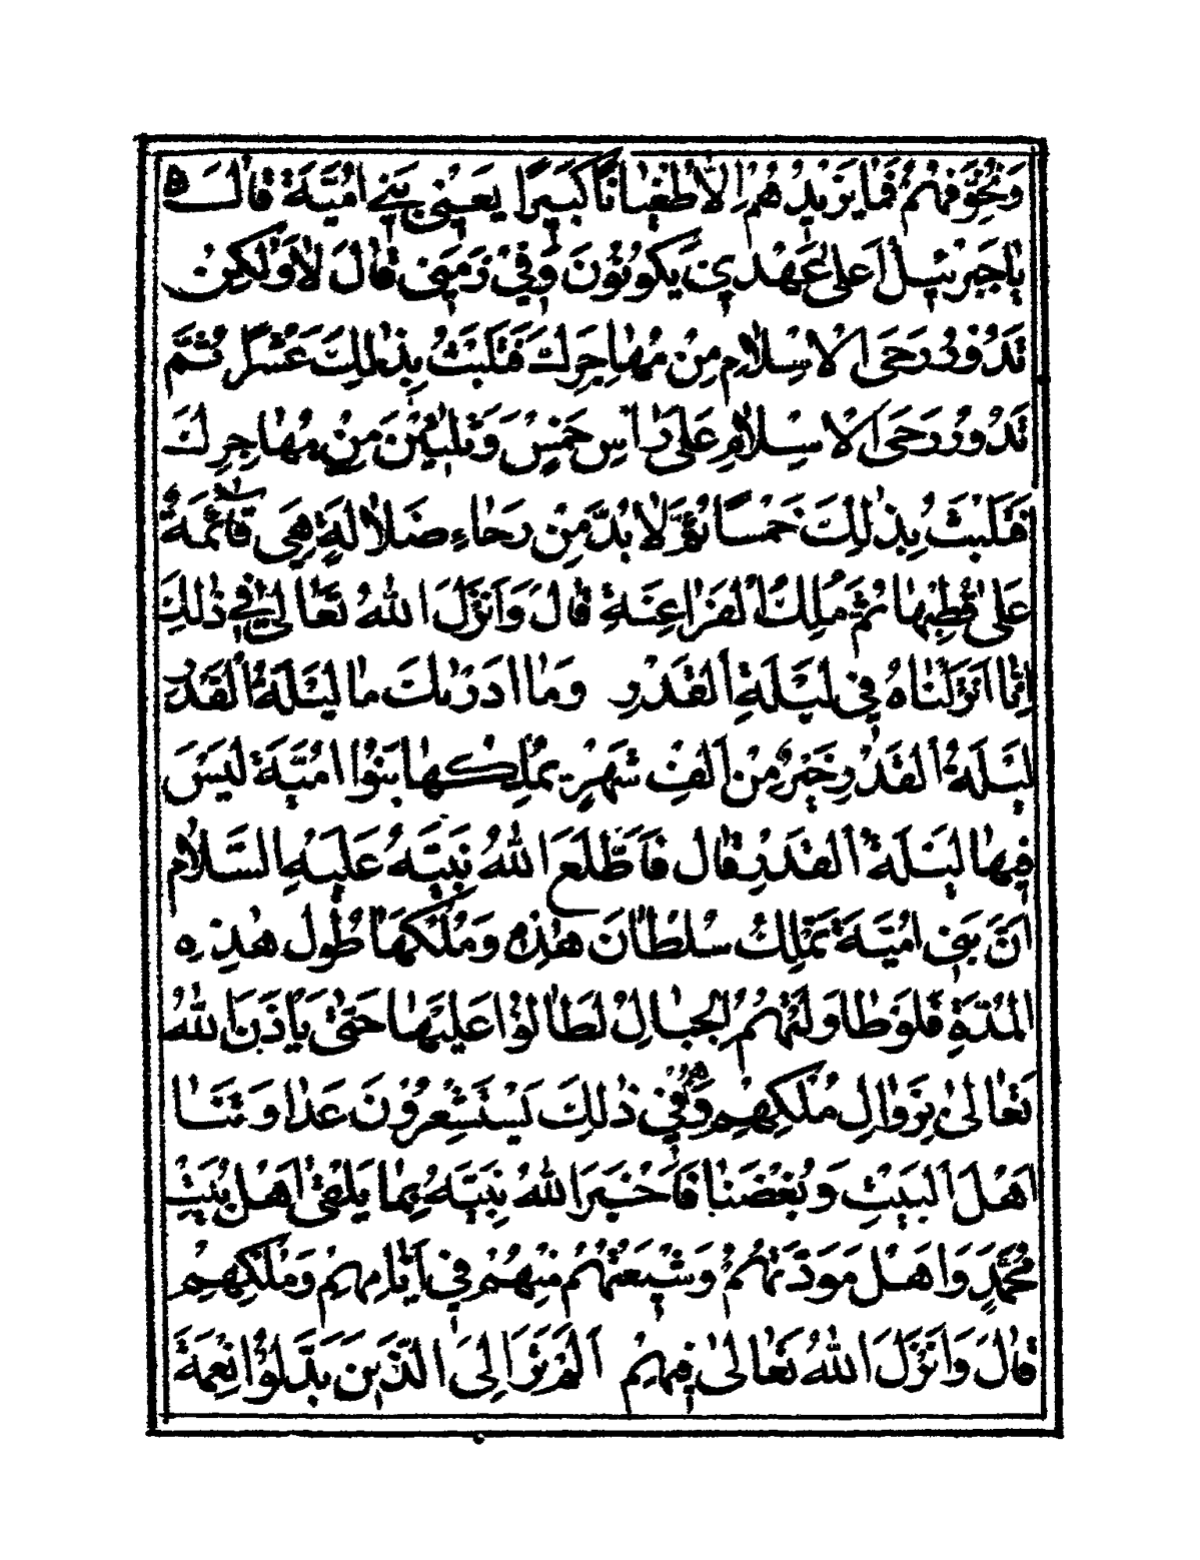 وَنُخَوِّفُهُمْ فَمَا يَزِيدُهُمْ اِلَّا طُغْيَانًا كَبِيرًا يَعْنِي بَنِي اُمَيَّةَ قَالَ
يَا جَبْرَئِيلُ اَعَلٰى عَهْدِي يَكُونُونَ وَفِي زَمَنِي قَالَ لَا وَلٰكِنْ
تَدُورُ رَحَى الْاِسْلَامِ مِنْ مُهَاجَرِكَ فَتَلْبَثُ بِذٰلِكَ عَشْرًا ثُمَّ
تَدُورُ رَحَى الْاِسْلَامِ عَلٰى رَأْسِ خَمْسٍ وَثَلٰثِينَ مِنْ مُهَاجِرِكَ
فَتَلْبَثُ بِذٰلِكَ خَمْسًا ثُمَّ لَا بُدَّ مِنْ رَحَاءِ ضَلَالَةٍ هِيَ قَائِمَةٌ
عَلٰى قُطْبِهَا ثُمَّ مُلْكُ الْفَرَاعِنَةِ قَالَ وَاَنْزَلَ اللهُ تَعَالٰى فِي ذٰلِكَ
اِنَّا اَنْزَلْنَاهُ فِي لَيْلَةِ الْقَدْرِ وَمَا اَدْرٰيكَ مَا لَيْلَةُ الْقَدْرِ
لَيْلَةُ الْقَدْرِ خَيْرٌ مِنْ اَلْفِ شَهْرٍ يَمْلِكُهَا بَنُوا اُمَيَّةَ لَيْسَ
فِيهَا لَيْلَةُ الْقَدْرِ قَالَ فَاَطْلَعَ اللهُ نَبِيَّهُ عَلَيْهِ السَّلَامُ
اَنَّ بَنِي اُمَيَّةَ تَمْلِكُ سُلْطَانَ هٰذِهِ وَمُلْكَهَا طُولَ هٰذِهِ
الْمُدَّةِ فَلَوْ طَاوَلَتْهُمُ الْجِبَالُ لَطَالُوا عَلَيْهَا حَتّٰى يَأْذَنَ اللهُ
تَعَالٰى بِزَوَالِ مُلْكِهِمْ وَفِي ذٰلِكَ يَسْتَشْعِرُونَ عَدَاوَتَنَا
اَهْلَ الْبَيْتِ وَبُغْضَنَا فَاَخْبَرَ اللهُ نَبِيَّهُ بِمَا يَلْقٰى اَهْلُ بَيْتِ
مُحَمَّدٍ وَاَهْلُ مَوَدَّتِهُمْ وَشِيعَتُهُمْ مِنْهُمْ فِي اَيَّامِهِمْ وَمُلْكِهِمْ
قَالَ وَاَنْزَلَ اللهُ تَعَالٰى فِيهِمْ اَلَمْ تَرَ اِلَى الَّذِينَ بَدَّلُوا نِعْمَةَ